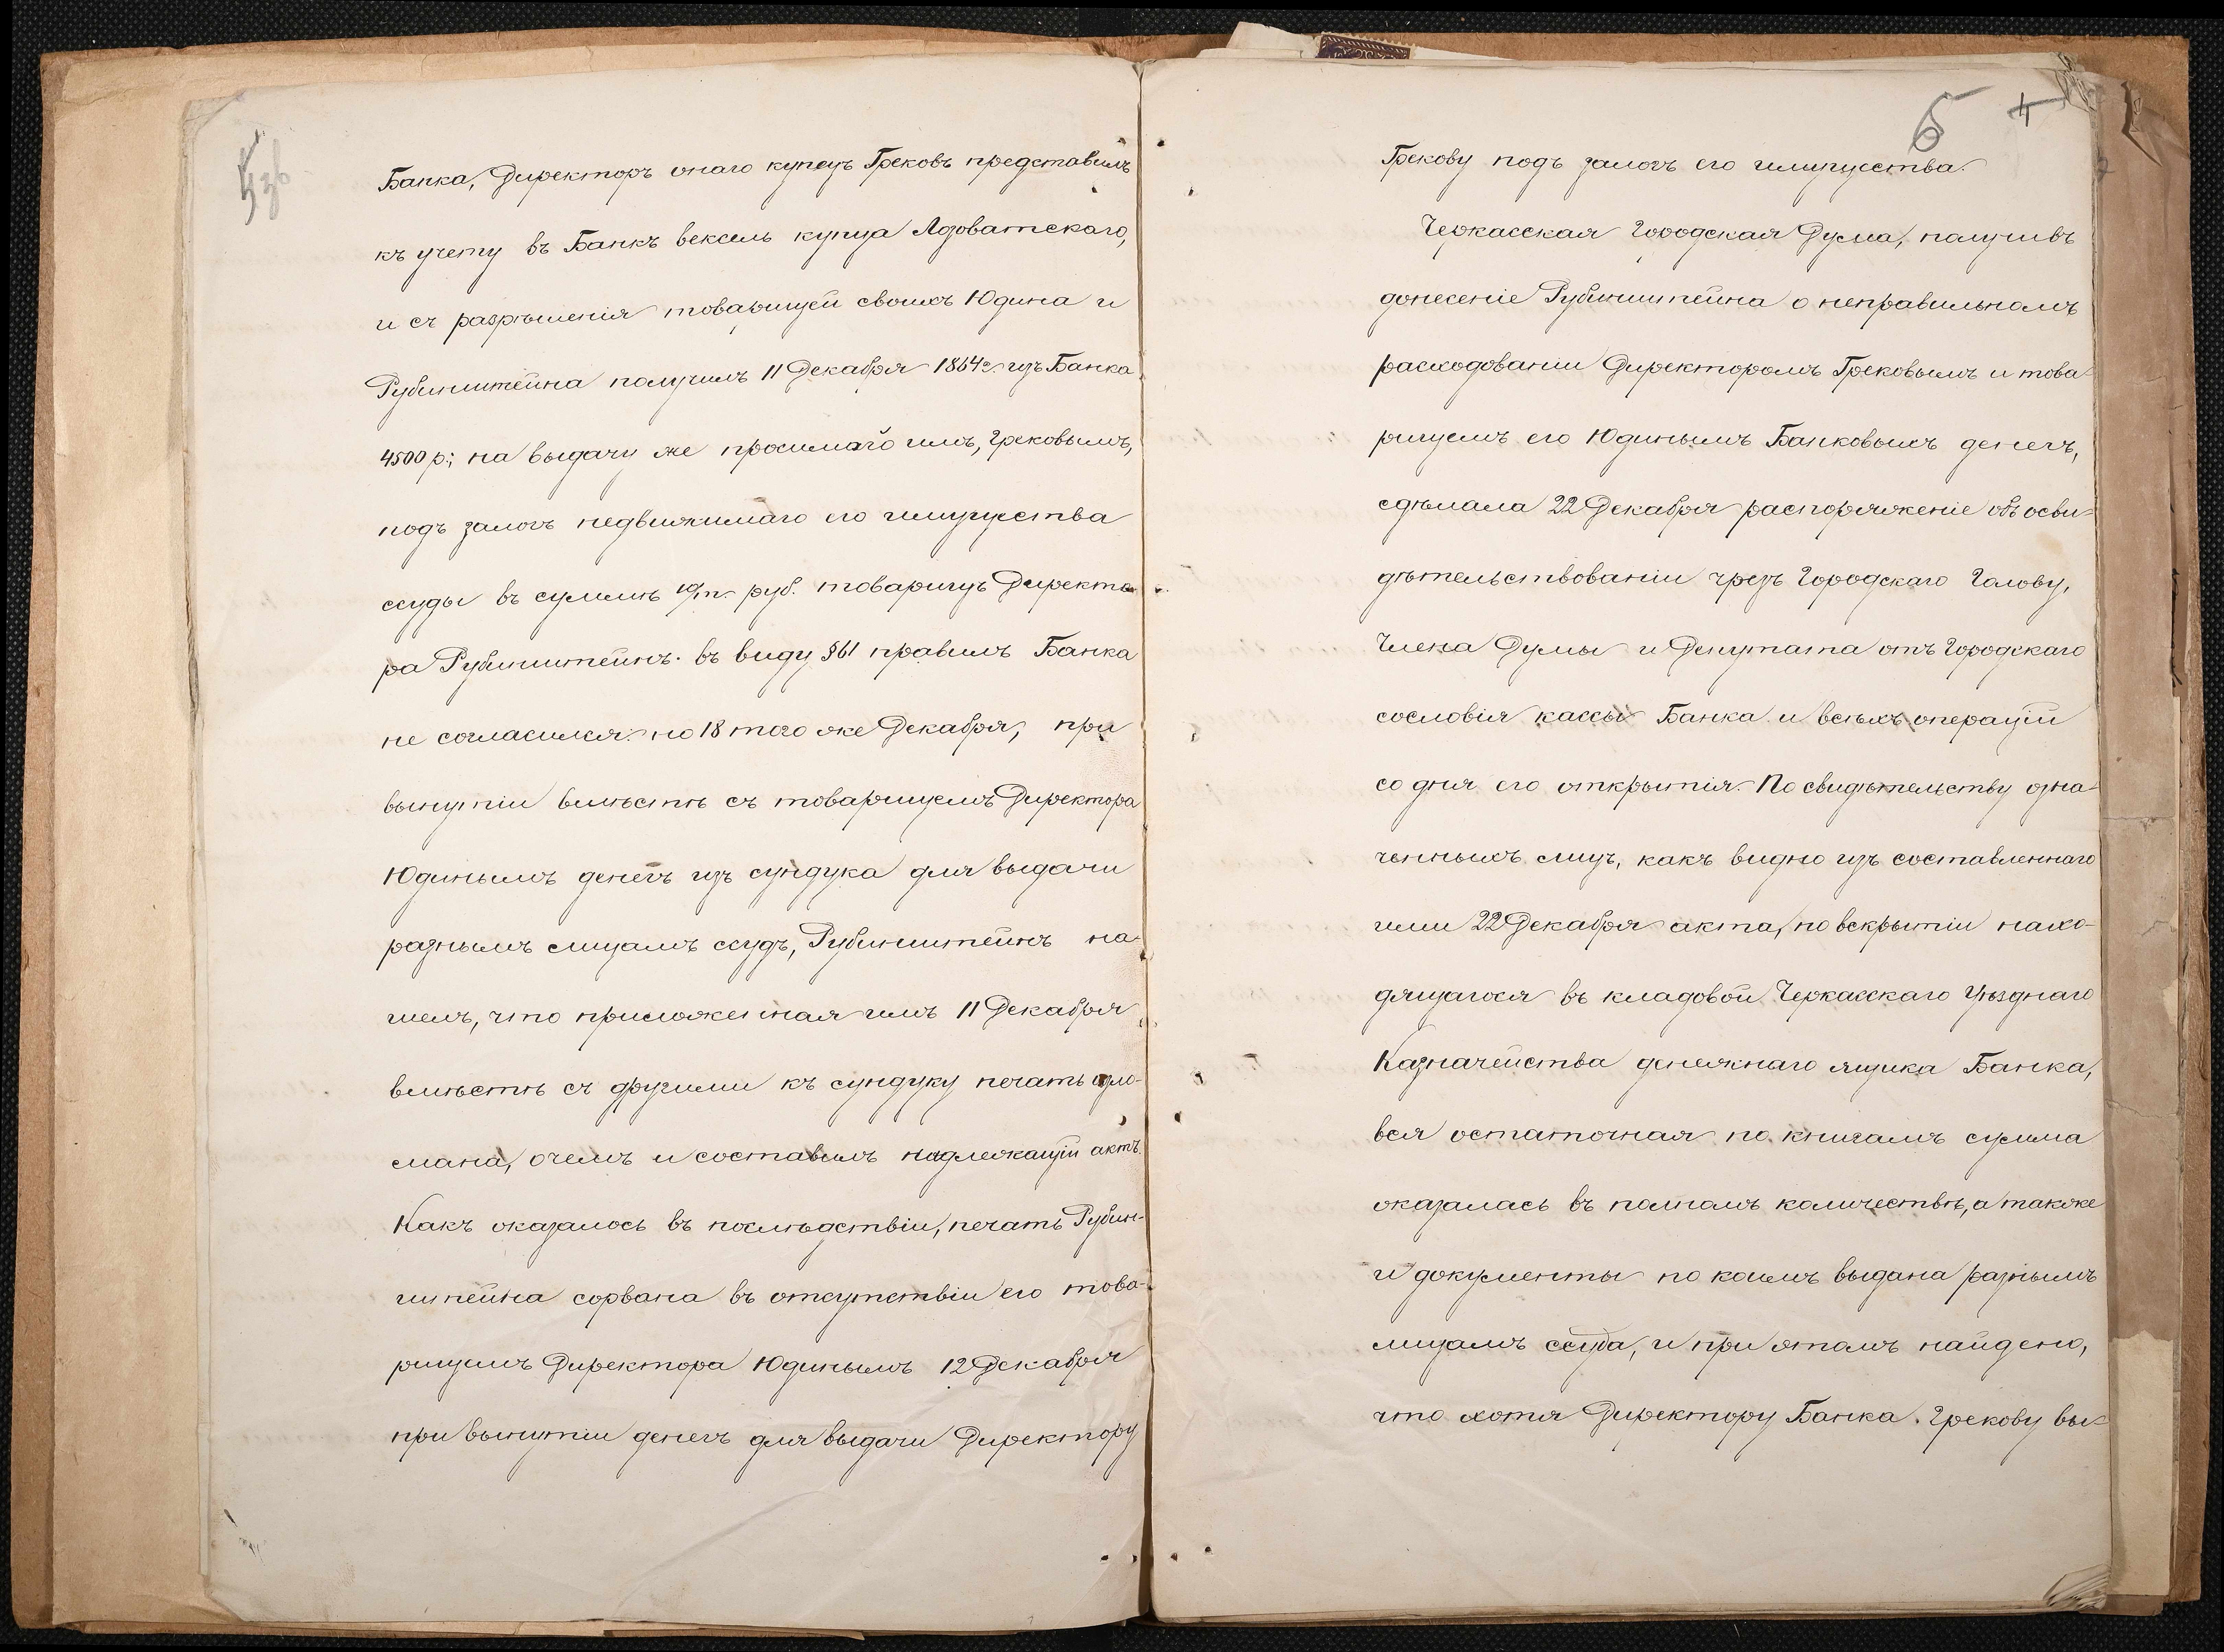 Банка, Директоръ онаго купецъ Грековъ представилъ
къ учету въ Банкъ вексель купца Лозоватскаго,
и съ разрѣшенія товарищей своихъ Юдина и
Рубинштейна получилъ 11 Декабря 1864 г. изъ Банка
4500 р.; на выдачу же просимаго имъ, Грековымъ,
подъ залогъ недвижимаго его имущества
ссуды въ суммѣ 10/т. руб. товарищъ Директо-
ра Рубинштейнъ въ виду § 61 правилъ Банка
не согласился; но 18 того же Декабря, при
вынутіи вмѣстѣ съ товарищемъ Директора
Юдинымъ денегъ изъ сундука для выдачи
разнымъ лицамъ ссудъ, Рубинштейнъ на-
шелъ, что приложенная имъ 11 Декабря
вмѣстѣ съ другими къ сундуку печать изло-
мана, о чемъ и составилъ надлежащій актъ.
Какъ оказалось въ послѣдствіи, печать Рубин-
штейна сорвана въ отсутствіи его това-
рищемъ Директора Юдинымъ 12 Декабря
при вынутіи денегъ для выдачи Директору
5 4
Грекову подъ залогъ его имущества.
Черкасская Городская Дума, получивъ
донесеніе Рубинштейна о неправильномъ
расходованіи Директоромъ Грековымъ и това-
рищемъ его Юдинымъ Банковыхъ денегъ,
сдѣлала 22 Декабря распоряженіе объ осви-
дѣтельствованіи чрезъ Городскаго Голову,
Члена Думы и Депутата отъ Городскаго
сословія кассы Банка и всѣхъ операцій
со дня его открытія. По свидѣтельству озна-
ченныхъ лицъ, какъ видно изъ составленнаго
ими 22 Декабря акта, по вскрытіи нахо-
дящагося въ кладовой Черкасскаго Уѣзднаго
Казначейства денежнаго ящика Банка,
вся остаточная по книгамъ сумма
оказалась въ полномъ количествѣ, а также
и документы по коимъ выдана разнымъ
лицамъ ссуда, и при этомъ найдено,
что хотя Директору Банка Грекову вы-